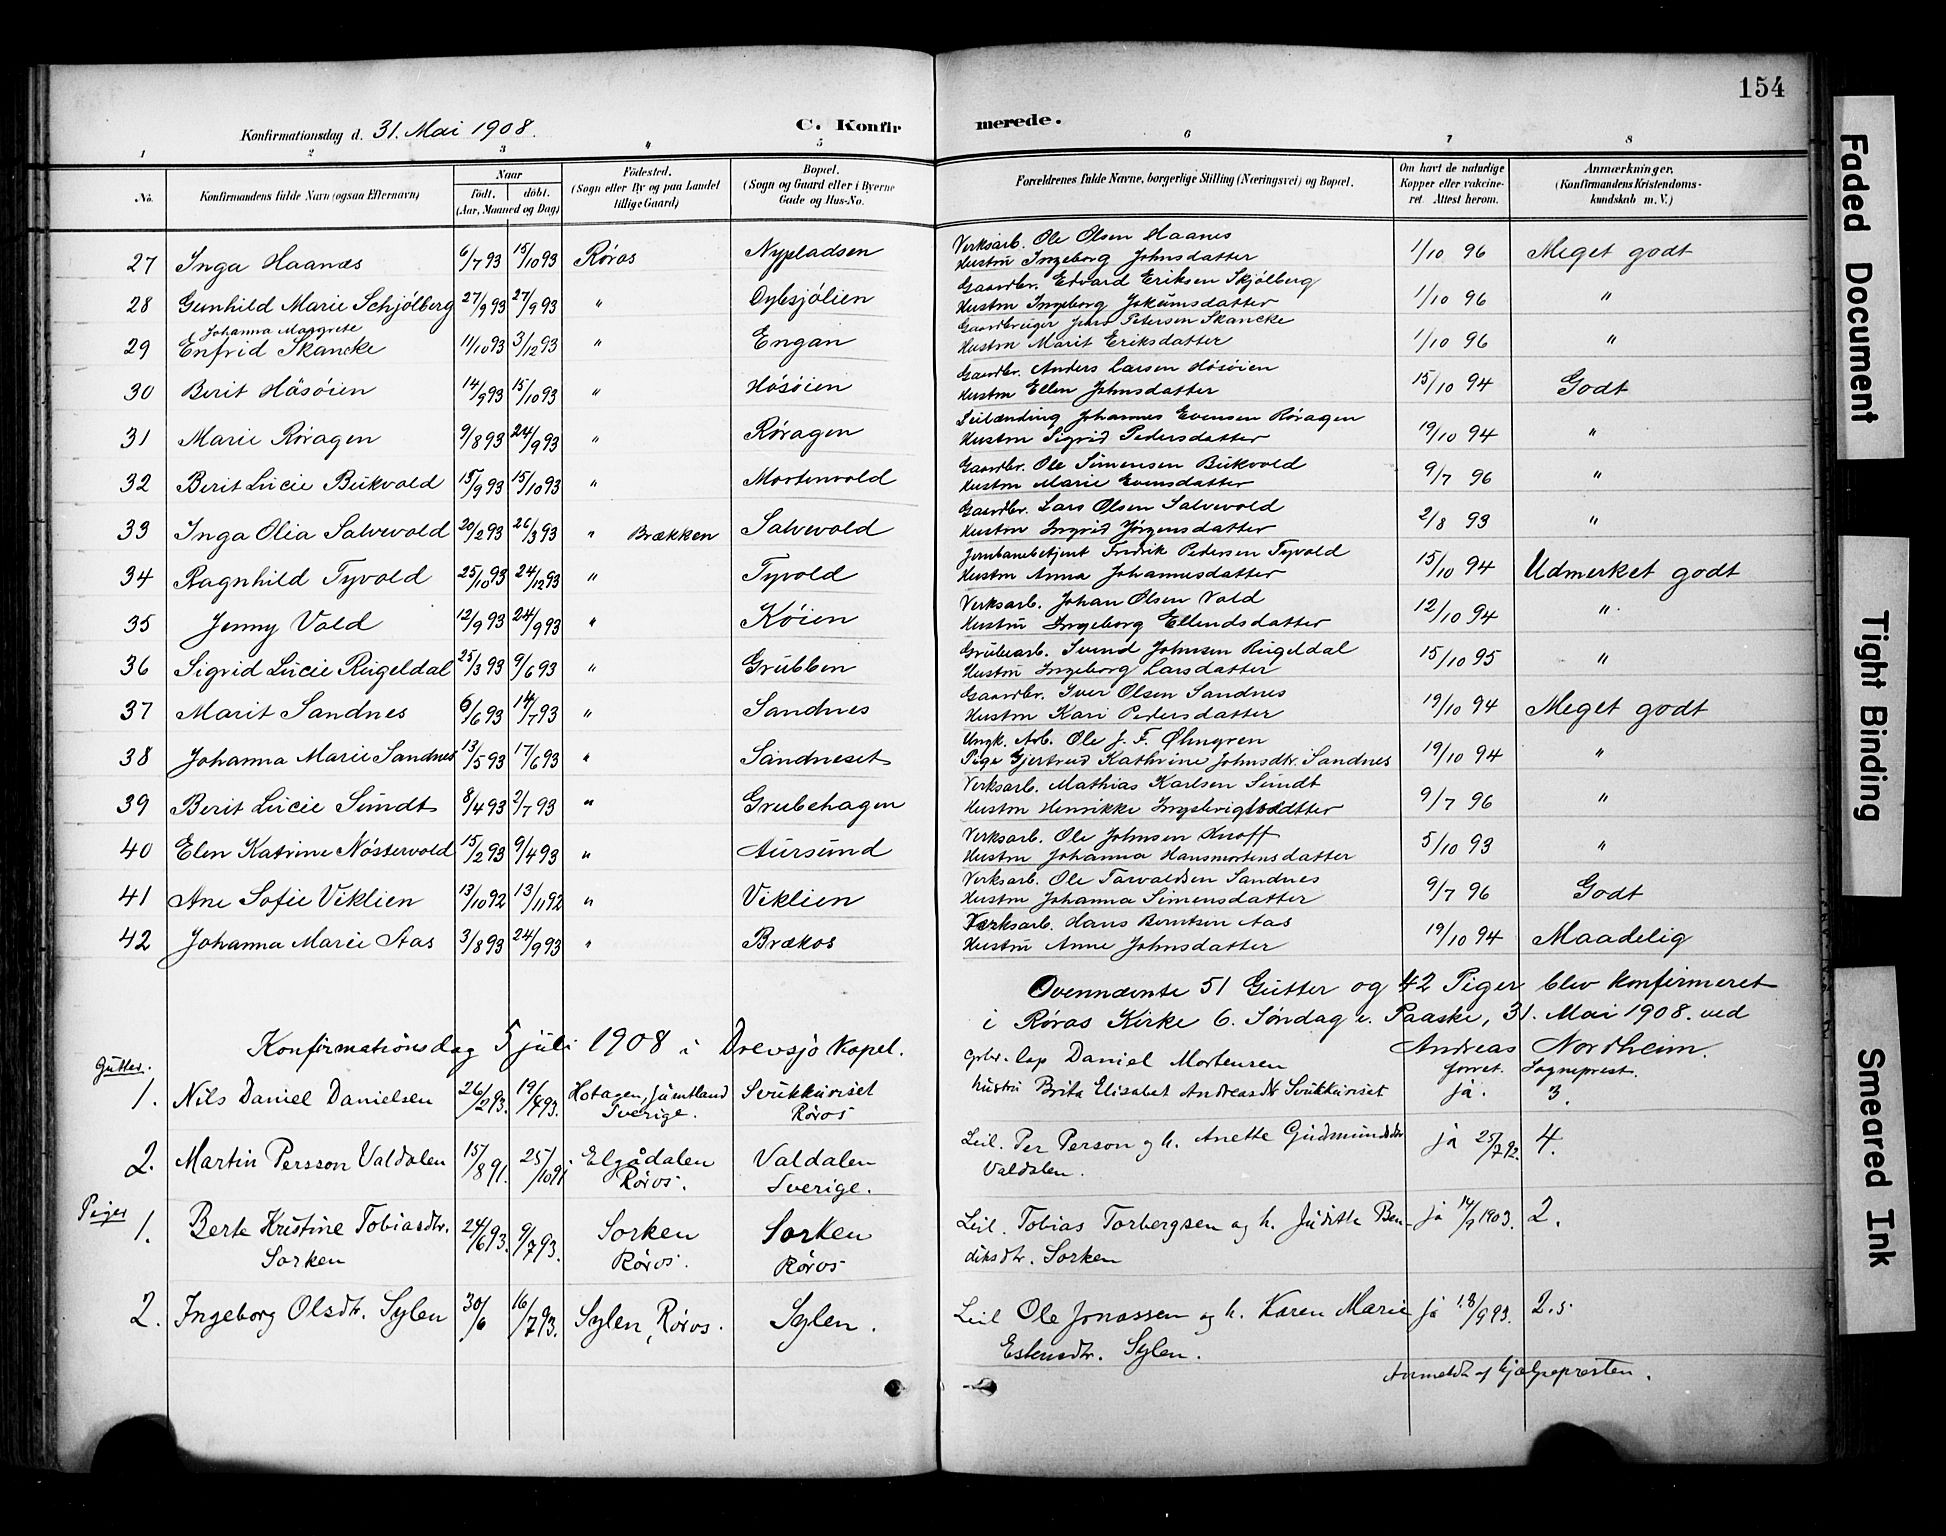 154
Konfirmationsdag d. 31. Mai 1908.
C. Konfirmerede.
1 2 3 4 5 6 7 8
No. Konfirmandens fulde Navn (ogsaa Efternavn) Naar Født. døbt. (Aar, Maaned og Dag) Fødested. (Sogn eller By og paa Landet tillige Gaard) Bopæl. (Sogn og Gaard eller i Byerne Gade og Hus-No. Forældrenes fulde Navne, borgerlige Stilling (Næringsvei) og Bopæl. Om havt de naturlige Kopper eller vakcineret. Attest herom. Anmærkninger. (Konfirmandens Kristendomskundskab m. V.)
27 Inga Haanæs 6/7 93 15/10 93 Røros Nypladsen Verksarb. Ole Olsen Haanes 1/10 96 Meget godt
Hustru Ingeborg Johnsdatter
28 Gunhild Marie Schjölberg 27/9 93 27/9 93 " Dybsjölien Gaardbr. Edvard Eriksen Skjölberg 1/10 96 "
Hustru Ingeborg Jokumsdatter
Johanna Margrete
29 Enfrid Skancke 11/10 93 3/12 93 " Engan Gaardbruger Jens Petersen Skancke 1/10 96 "
Hustru Marit Eriksdatter
30 Berit Håsöien 14/9 93 15/10 93 " Hösöien Gaardbr. Anders Larsen Hösöien 15/10 94 Godt
Hustru Ellen Johnsdatter
31 Marie Røragen 9/8 93 24/9 93 " Røragen Leilænding Johannes Evensen Røragen 19/10 94 "
Hustru Sigrid Pedersdatter
32 Berit Lucie Bukvold 15/9 93 15/10 93 " Mortenvold Gaardbr. Ole Simensen Bukvold 9/7 96 "
Hustru Marie Evensdatter
33 Inga Olia Salvevold 20/2 93 26/3 93 " Brækken Salvevold Gaardbr. Lars Olsen Salvevold 2/8 93 "
Hustru Ingrid Jörgensdatter
34 Ragnhild Tyvold 25/10 93 24/12 93 " Tyvold Jernbanebetjent Fredrik Pedersen Tyvold 15/10 94 Udmerket godt
Hustru Anna Johannesdatter
35 Jenny Vold 12/9 93 24/9 93 " Køien Verksarb. Johan Olsen Vold 12/10 94 "
Hustru Ingeborg Ellendsdatter
36 Sigrid Lucie Rugeldal 25/3 93 9/6 93 " Grubben Grubearb. Svend Johnsen Rugeldal 15/10 95 "
Hustru Ingeborg Larsdatter
37 Marit Sandnes 6/6 93 14/7 93 " Sandnes Gaardbr. Iver Olsen Sandnes 19/10 94 Meget godt
Hustru Kari Pedersdatter
38 Johanna Marie Sandnes 13/5 93 17/6 93 " Sandneset Ungk. Arb. Ole J. F. Øhngren 19/10 94 "
Pige Gjertrud Kathrine Johnsdtr. Sandnes
39 Berit Lucie Sundt 8/4 93 2/7 93 " Grubehagen Verksarb. Mathias Karlsen Sundt 9/7 96 "
Hustru Henrikke
40 Elen Katrine Nöstervold 15/2 93 9/4 93 " Aursund Verksarb. Ole Johnsen Knoff 5/10 93 "
Hustru Johanna Hansmortensdatter
41 Ane Sofie Viklien 13/10 92 13/11 92 " Viklien Verksarb. Ole Tarvaldsen Sandnes 9/7 96 Godt
Hustru Johanna Simensdatter
42 Johanna Marie Aas 3/8 93 24/9 93 " Brækos Værksarb. Hans Berntsen Aas 19/10 94 Maadelig
Hustru Anne Johnsdatter
Ovennævnte 51 Gutter og 42 Piger blev konfirmeret
i Røros Kirke 6. Søndag e. Paaske, 31. Mai 1908. ved
Andreas Nordheim.
Sogneprest.
Konfirmationsdag 5 juli 1908 i Drevsjø Kapel.
Gutter.
1. Nils Daniel Danielsen 26/2 93. 19/4 93. Hotagen, Jämtland Sverige. Svukkuriset Røros Grbr. lap Daniel Mortensen forret. ja. 3.
hustru Brita Elisabet Andreasdt Svukkuriset
2. Martin Persson Valdalen 15/8 91. 25/10 91 Elgådalen Røros. Valdalen Sverige. Leil. Per Person og h. Anette Gudmundsdtr ja 25/7 92. 4.
Valdalen.
Piger
1. Berte Kristine Tobiasdtr. Sorken 24/6 93. 9/7 93. Sorken Røros. Sorken Røros Leil. Tobias Torbergsen og h. Juditte Ben- ja 14/9 1903. 2.
diksdtr. Sorken
2. Ingeborg Olsdtr. Sylen 30/6 16/7 93. Sylen, Røros. Sylen. Leil Ole Jonassen og h. Karen Marie ja 18/9 93. 2.5
Estensdtr. Sylen.
Anmeldt af hjælpepresten.
Faded Document
Tight Binding
Smeared Ink